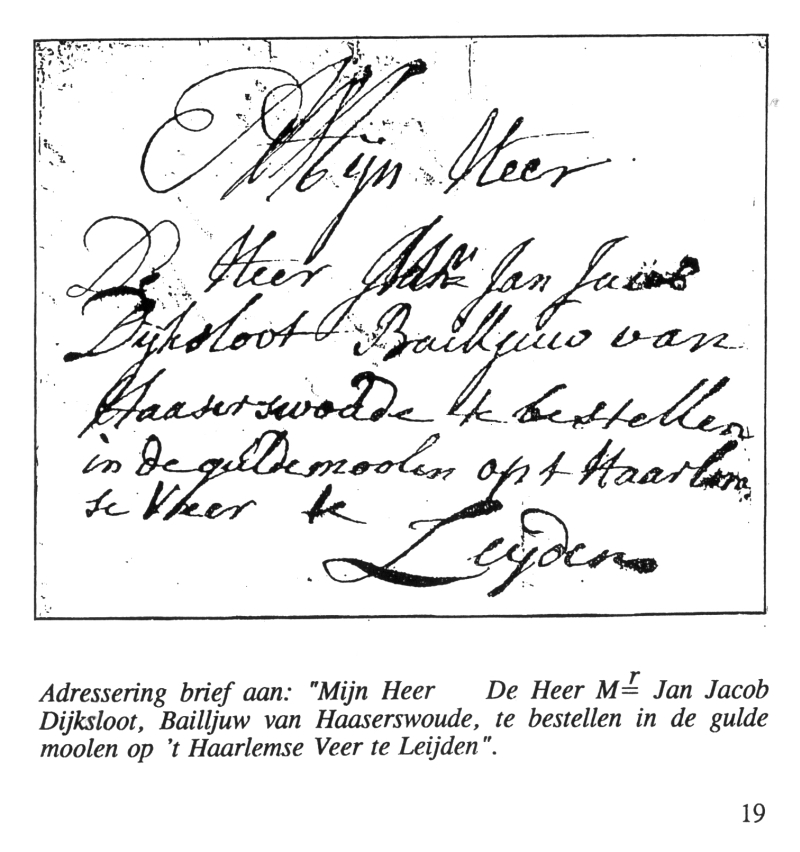 Mijn Heer
De Heer Mr. Jan Jacob
Dijksloot Bailljuw van
Haaserswoude te bestellen
in de guldemoolen op t Haarlem
se Veer te
Leijden
Adressering brief aan: "Mijn Heer De Heer Mr Jan Jacob
Dijksloot, Bailljuw van Haaserswoude, te bestellen in de gulde
moolen op 't Haarlemse Veer te Leijden".
19